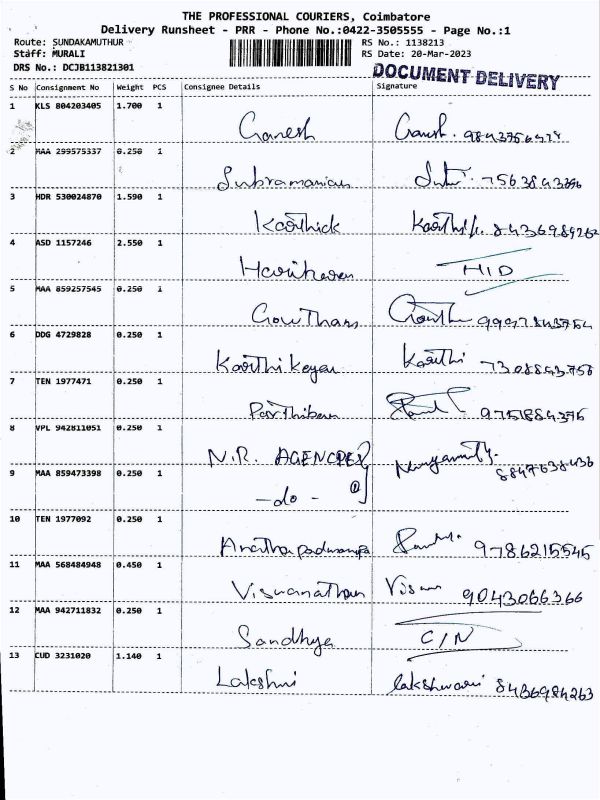 THE PROFESSIONAL COURIERS, Coimbatore
Delivery Runsheet - PRR - Phone No.:0422-3505555 - Page No.:1
Route: SUNDAKAMUTHUR RS No.: 1138213
Staff: MURALI RS Date: 20-Mar-2023
DRS No.: DCJB113821301 DOCUMENT DELIVERY
S No Consignment No Weight PCS Consignee Details Signature
1 KLS 804203405 1.700 1
Ganesh Ganesh.
2 MAA 299575337 0.250 1
Subramanian
3 HDR 530024870 1.590 1
Karthick Karthik. 8436984262
4 ASD 1157246 2.550 1
Hariharan HID
5 MAA 859257545 0.250 1
Gowtham 9997843764
6 DDG 4729828 0.250 1
Karthikeyan Karthi 7308843756
7 TEN 1977471 0.250 1
Parthiban 9751884376
8 VPL 942811051 0.250 1
N.R. AGENCIES 8847638436
9 MAA 859473398 0.250 1
-do-
10 TEN 1977092 0.250 1
9786215545
11 MAA 568484948 0.450 1
Viswanathan 9043066366
12 MAA 942711832 0.250 1
Sandhya C/N
13 CUD 3231020 1.140 1
Lakshmi 8436984263